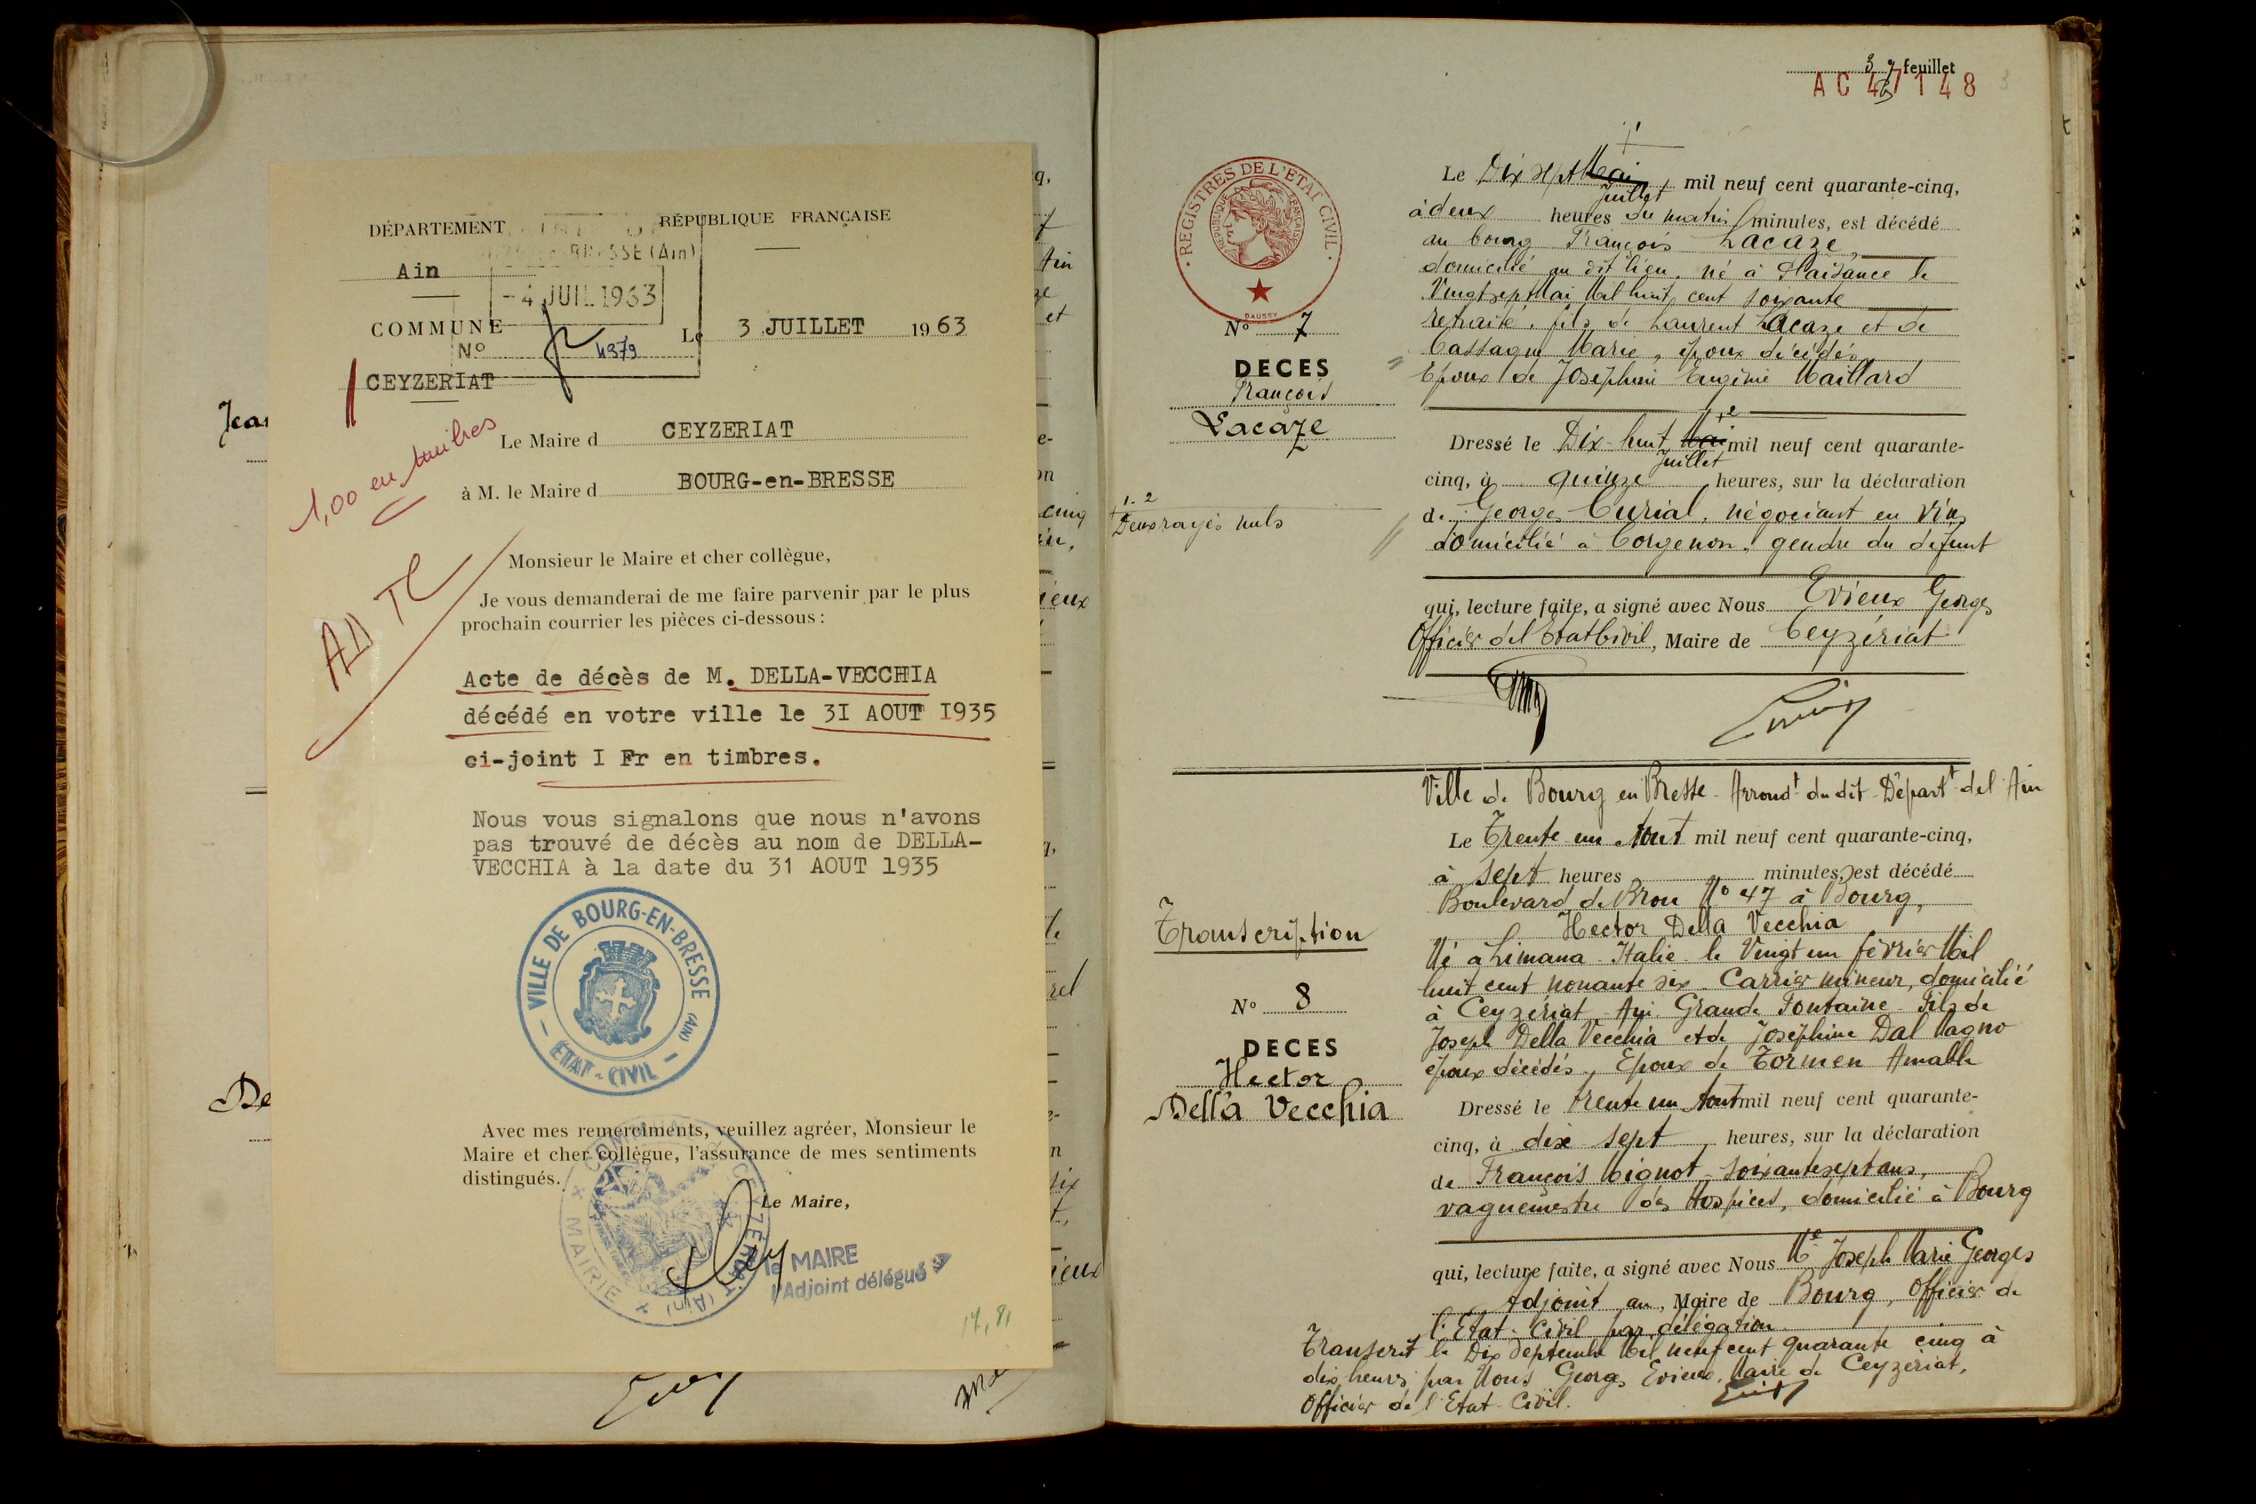 DÉPARTEMENT
RÉPUBLIQUE FRANÇAISE
BRESSE (Ain)
Ain
-4 JUIL 1963
COMMUNE
Le 3 JUILLET 1963
N° 4379
CEYZERIAT
1,00 en timbres
Le Maire d CEYZERIAT
à M. le Maire d BOURG-en-BRESSE
Monsieur le Maire et cher collègue,
Je vous demanderai de me faire parvenir par le plus
prochain courrier les pièces ci-dessous :
Acte de décès de M. DELLA-VECCHIA
décédé en votre ville le 3I AOUT I935
ci-joint I Fr en timbres.
Nous vous signalons que nous n'avons
pas trouvé de décès au nom de DELLA-
VECCHIA à la date du 31 AOUT 1935
VILLE DE BOURG-EN-BRESSE (AIN)
ÉTAT-CIVIL
Avec mes remerciments, veuillez agréer, Monsieur le
Maire et cher collègue, l'assurance de mes sentiments
distingués.
Le Maire,
MAIRIE (Ain)
le MAIRE
l'Adjoint délégué
feuillet
AC 47148
REGISTRES DE L'ETAT CIVIL
REPUBLIQUE FRANÇAISE
DAUSSY
N° 7
DECES
François
Lacaze
1. 2
Deux rayés nuls
Le Dix sept Mai mil neuf cent quarante-cinq,
Juillet
à deux heures du matin minutes, est décédé
au bourg François Lacaze,
domicilié au dit lieu, né à Plaisance le
Vingt sept Mai Mil huit cent soixante
retraité, fils de Laurent Lacaze et de
Castagné Marie, époux décédés
Epoux de Joséphine Eugénie Maillard
Dressé le Dix-huit Mai mil neuf cent quarante-
Juillet
cinq, à quinze heures, sur la déclaration
de Georges Curial, négociant en vins
domicilié à Corgenon, gendre du défunt
qui, lecture faite, a signé avec Nous Evieux Georges
Officier de l'Etat Civil, Maire de Ceyzériat
Ville de Bourg en Bresse - Arrondt du dit - Départt de l'Ain
Transcription
N° 8
DECES
Hector
Della Vecchia
Le Trente un Aout mil neuf cent quarante-cinq,
à sept heures minutes, est décédé
Boulevard de Brou N° 47 à Bourg,
Hector Della Vecchia
Né à Limana - Italie le Vingt un février Mil
huit cent nonante six. Carrier mineur, domicilié
à Ceyzériat Ain Grande Fontaine. Fils de
Joseph Della Vecchia et de Joséphine Dal Magno
époux décédés, Epoux de Tormen Amable
Dressé le trente un Aout mil neuf cent quarante-
cinq, à dix sept heures, sur la déclaration
de François Mignot, soixante sept ans,
vaguemestre des Hospices, domicilié à Bourg
qui, lecture faite, a signé avec Nous Me Joseph Marie Georges
Adjoint au, Maire de Bourg, Officier de
l'Etat-Civil par délégation
Transcrit le Dix Septembre Mil neuf cent quarante cinq à
dix heures par Nous Georges Evieux, Maire de Ceyzériat,
Officier de l'Etat-Civil.